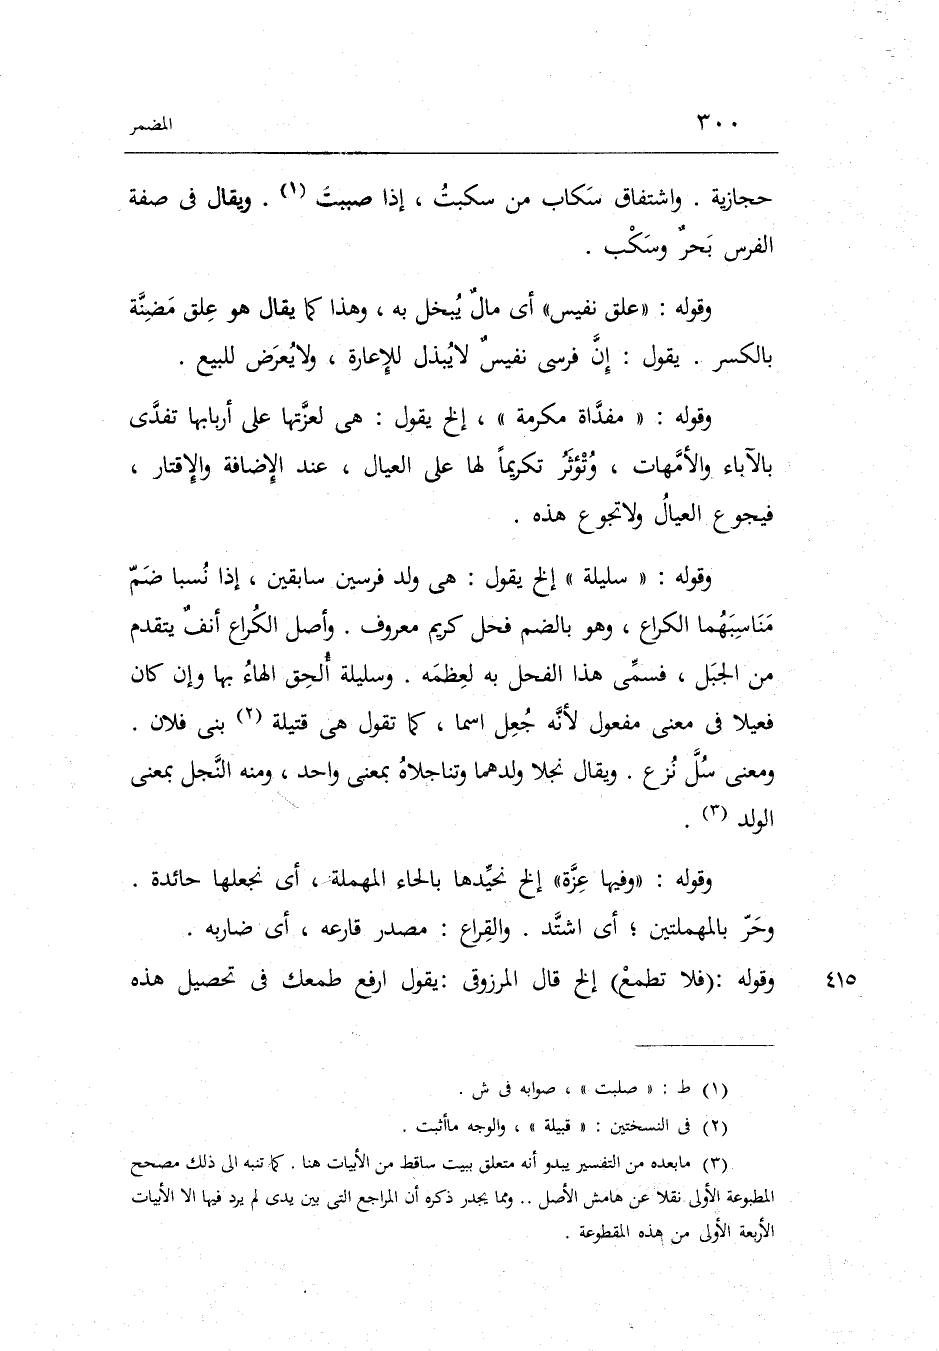 ٣٠٠ المضمر
حجازية . واشتقاق سَكاب من سكبتُ ، إذا صببتَ (١) . ويقال فى صفة
الفرس بَحرٌ وسَكْب .
وقوله : «علق نفيس» أى مالٌ يُبخل به ، وهذا كما يقال هو عِلق مَضِنَّة
بالكسر . يقول : إنَّ فرسى نفيسٌ لايُبذل للإعارة ، ولايُعرَض للبيع .
وقوله : « مفدَّاة مكرمة » ، إلخ يقول : هى لعزَّتها على أربابها تفدَّى
بالآباء والأمَّهات ، وُتْؤثَرُ تكريماً لها على العيال ، عند الإضافة والإقتار ،
فيجوع العيالُ ولاتجوع هذه .
وقوله : « سليلة » إلخ يقول : هى ولد فرسين سابقين ، إذا نُسبا ضَمّ
مَنَاسِبَهُما الكراع ، وهو بالضم فحل كريم معروف . وأصل الكُراع أنفٌ يتقدم
من الجبَل ، فسمِّى هذا الفحل به لعِظمَه . وسليلة أُلحِق الهاءُ بها وإن كان
فعيلا فى معنى مفعول لأنَّه جُعِل اسما ، كما تقول هى قتيلة (٢) بنى فلان .
ومعنى سُلَّ نُزع . ويقال نجلا ولدهما وتناجلاهُ بمعنى واحد ، ومنه النَّجل بمعنى
الولد (٣) .
وقوله : «وفيها عِزَّة» إلخ نحيِّدها بالحاء المهملة ، أى نجعلها حائدة .
وحَرّ بالمهملتين ؛ أى اشتَّد . والقِراع : مصدر قارعه ، أى ضاربه .
وقوله :(فلا تطمعْ) إلخ قال المرزوقى :يقول ارفع طمعك فى تحصيل هذه ٤١٥
(١) ط : « صلبت » ، صوابه فى ش .
(٢) فى النسختين : « قبيلة » ، والوجه ماأثبت .
(٣) مابعده من التفسير يبدو أنه متعلق ببيت ساقط من الأبيات هنا . كما تنبه الى ذلك مصحح
المطبوعة الأولى نقلا عن هامش الأصل .. ومما يجدر ذكره أن المراجع التى بين يدى لم يرد فيها الا الأبيات
الأربعة الأولى من هذه المقطوعة .